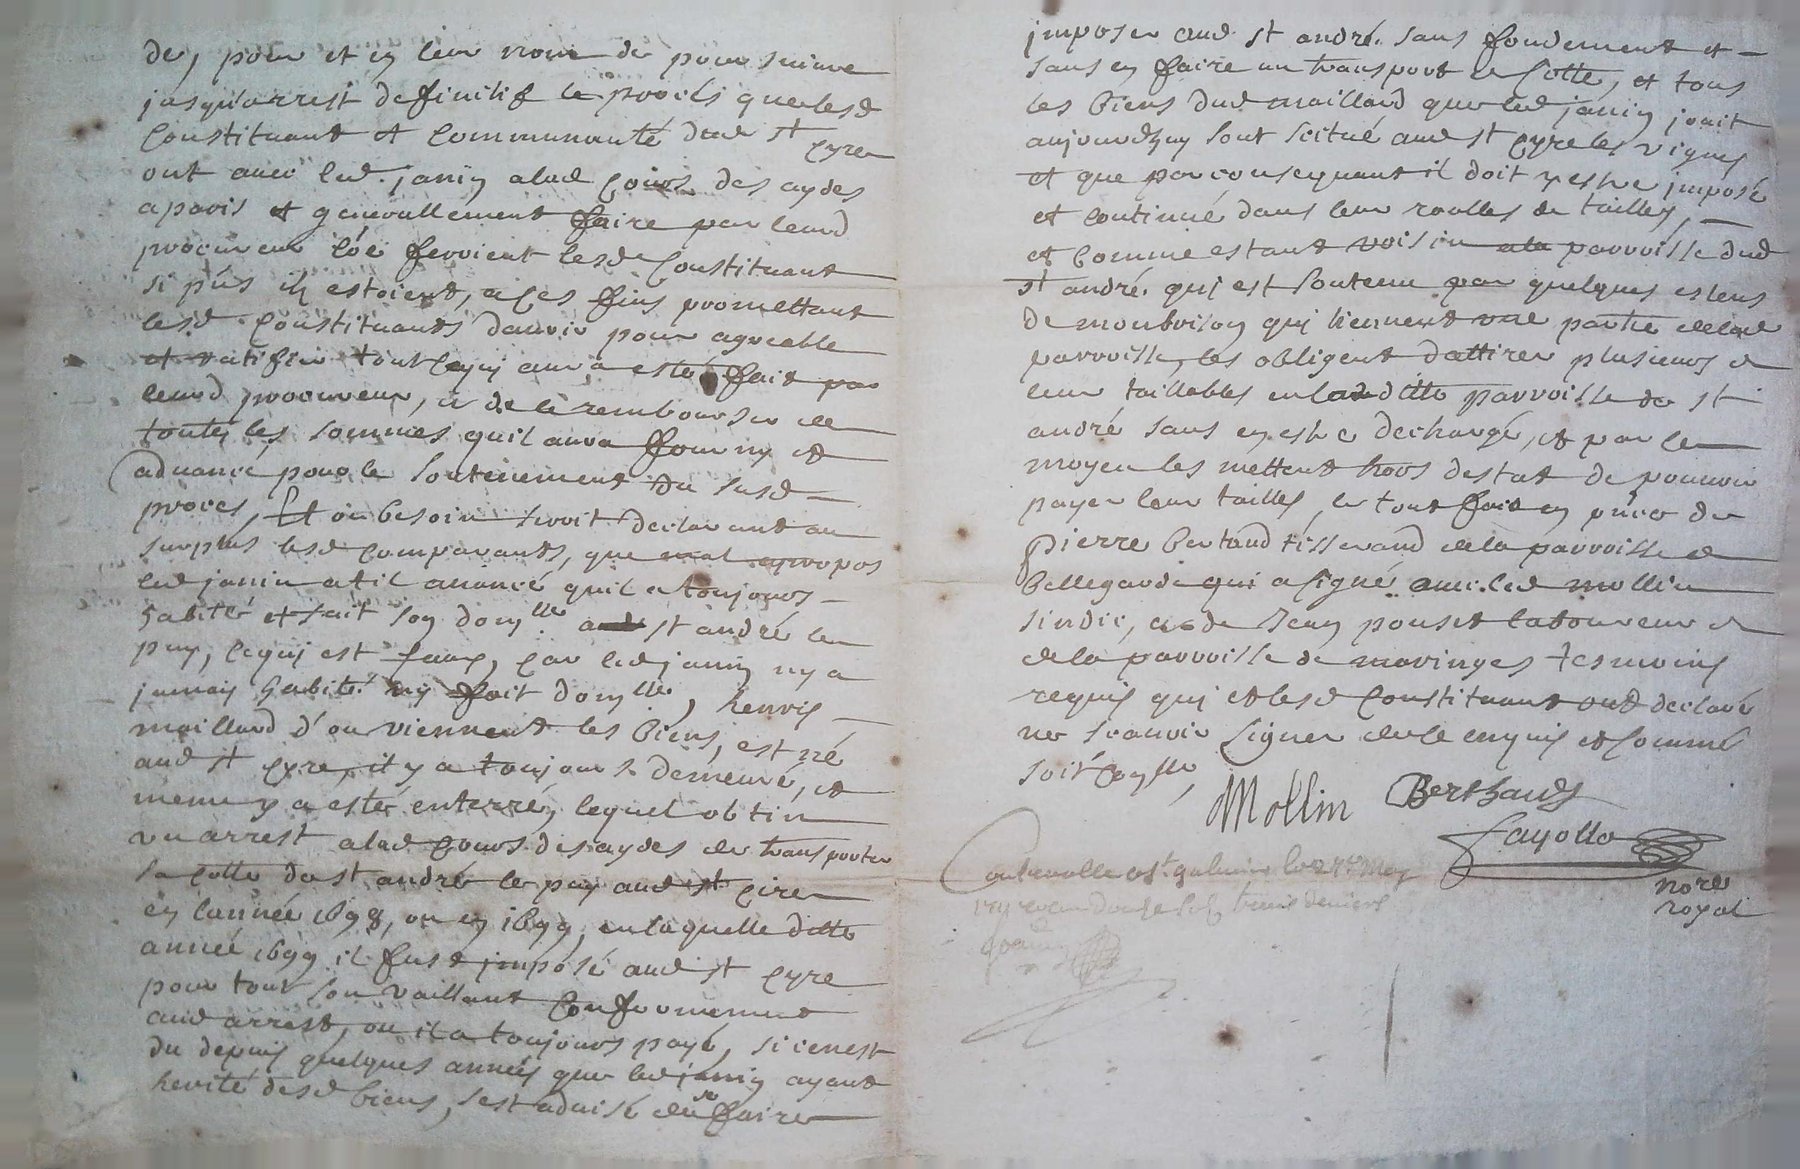 de, pour et en leur nom de poursuivre
jusqu'arrest definitif le procès que lesd
Constituant et Communauté dud st Cyre
ont avec led janin alad Cours des aydes
aparis et generallement faire par leurd
procureur co'e feroient lesd Constituant
si p'ns ilz estoient, a ces fins promettant
lesd Constituants d'avoir pour agreable
et ratifier tout cequi aura esté fait par
leurd procureur, et de le rembourser de
toutes les sommes quil aura fourny et
advancé pour le soutenement du susd
proces, Et où besoin seroit declarant au
surplus lesd comparants, que mal apropos
led janin at il avancé quil a toujours
habité et fait son domlle aud st andré le
puy, cequi est faux, car led janin ny a
jamais habité ny fait domlle, henris
maillard d'ou viennent les biens, est né
aud st Cyre, il y a toujours demeuré, et
meme y a esté enterré, lequel obtin
un arrest alad Cours des aydes de transporter
sa cotte de st andré le puy aud st Cire
en l'année 1698, ou en 1699, en laquelle ditte
année 1699 il fust imposé aud st Cyre
pour tout son vaillant Conformement
aud arrest, ou il a toujours payé, si cenest
du depuis quelques années que led janin ayant
herité desd biens, sest advisé de se faire
imposer aud st andré sans fondement et
sans en faire un transport de Cotte, et tous
les biens dud maillard que led janin jouit
aujourdhuy sont scitué aud st Cyre les vignes
et que par consequant il doit y estre imposé
et continué dans leur roolles de tailles,
et comme estant voisin ala parroisse dud
st andré qui est soutenu par quelques esleus
de monbrison qui tiennent une partie delad
parroisse, les obligent d'attirer plusieurs de
leur taillables en laditte parroisse de st
andré sans en estre dechargé, et par le
moyen les mettent hors destat de pouvoir
payer leur tailles, le tout fait en p'nce de
pierre bertaud tisserand de la parroisse de
bellegarde qui a signé avec led mollin
sindic, et de Jean pouset laboureur de
de la parroisse de maringes tesmoins
requis qui et lesd Constituant ont declaré
ne scavoir signer de ce enquis et sommé
soit Conllé,
Mollin Berthaud
fayolle
nore
royal
Controllé a st galmier le 27e may